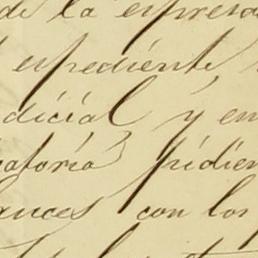 de la espresa
espediente,
dicial y en
atoria pidien
ances con los